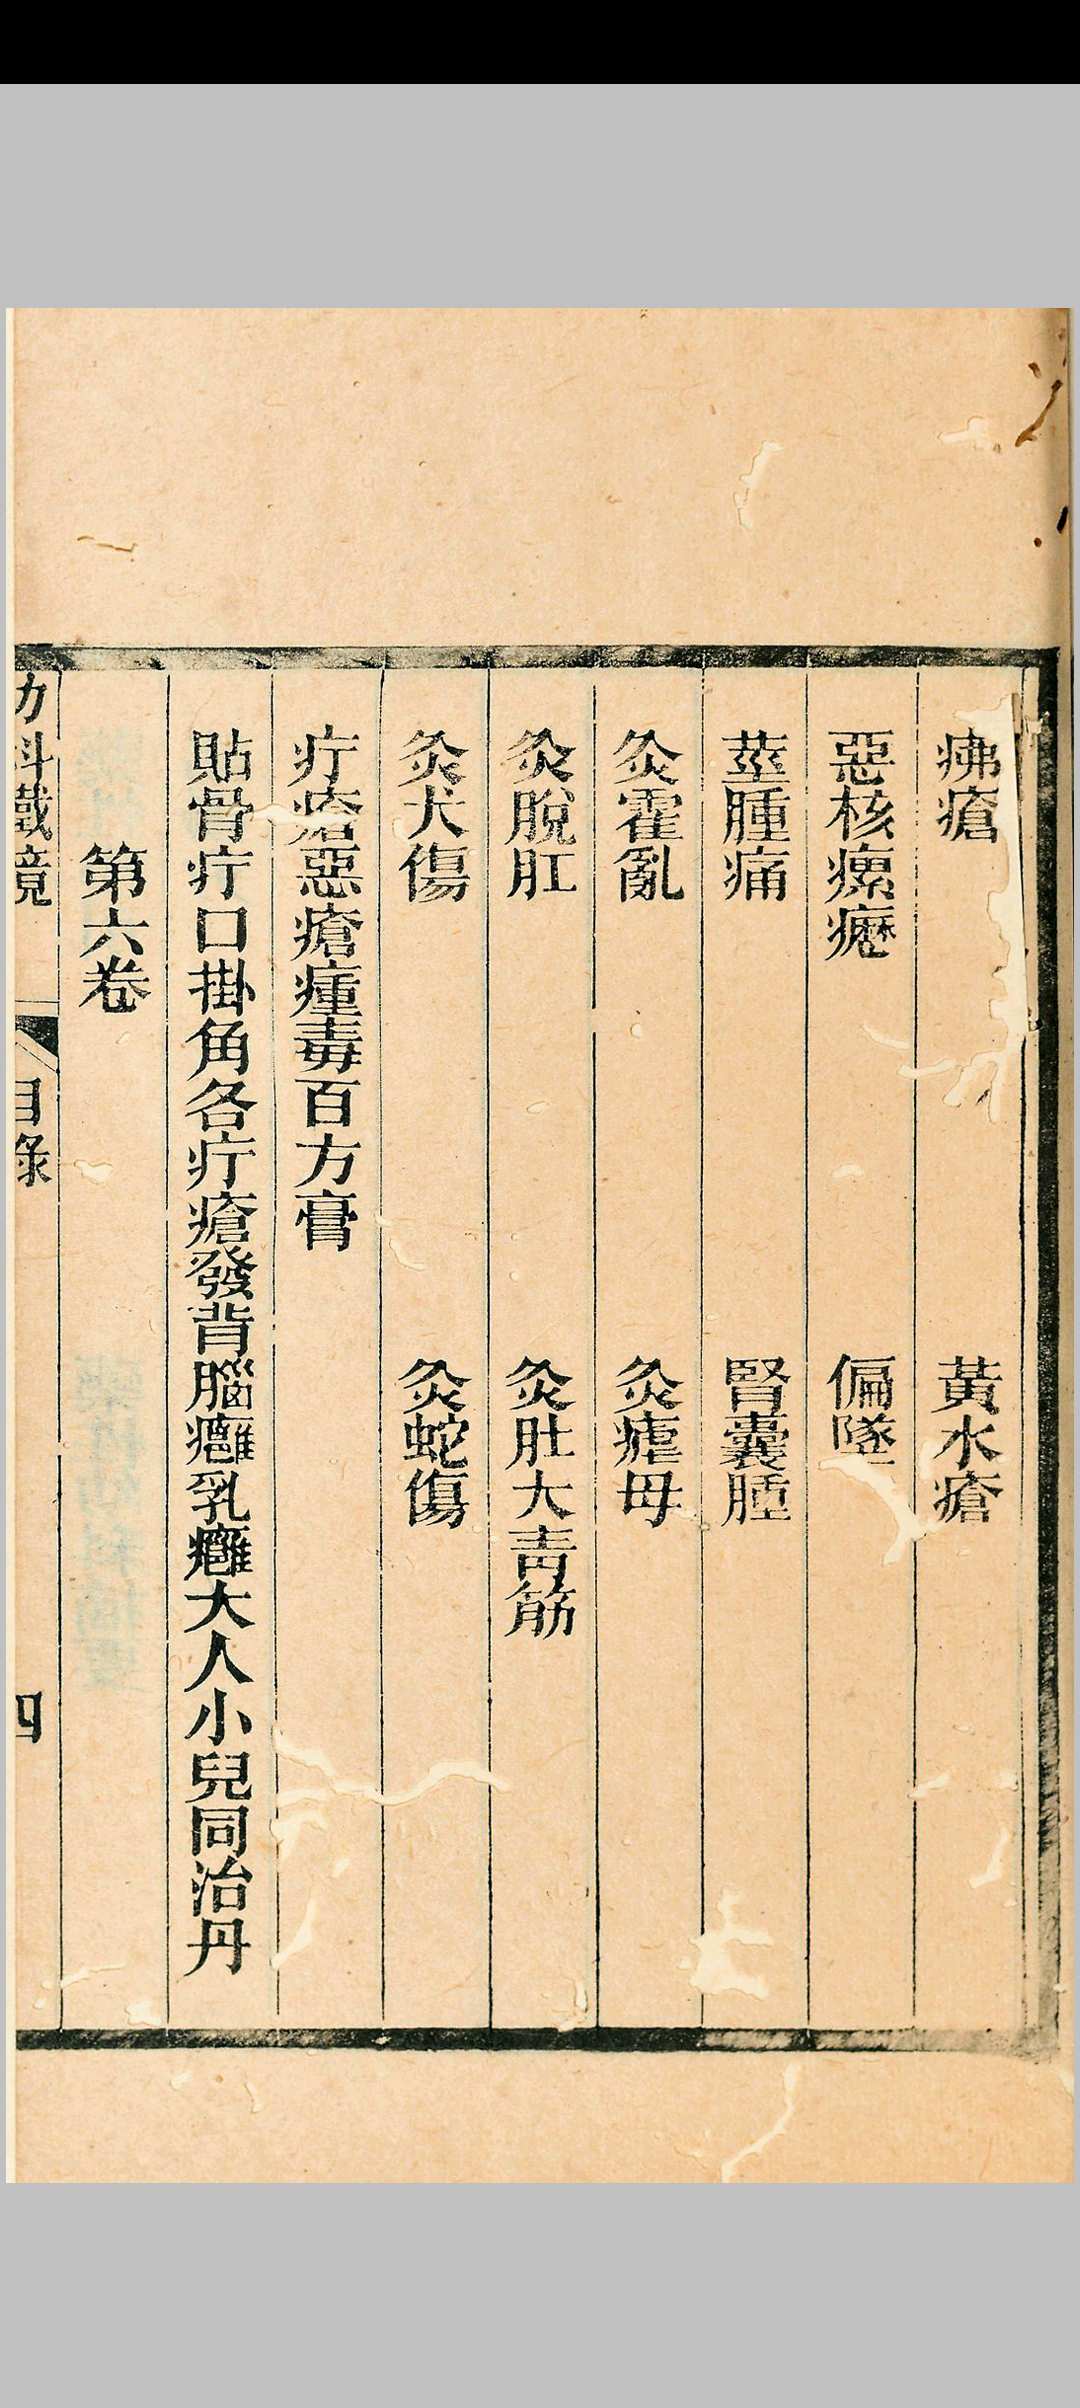 疿瘡　黃水瘡
惡核瘰癧　偏墜
莖腫痛　腎囊腫
灸霍亂　灸瘧母
灸脫肛　灸肚大靑筋
灸犬傷　灸蛇傷
疔瘡惡瘡瘇毒百方膏
貼骨疔口掛角各疔瘡發背腦癰乳癰大人小兒同治丹
第六卷
幼科鐵鏡　目錄　四